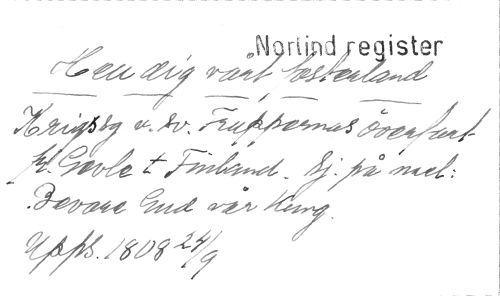 Norlind register
Hell dig vårt fosterland
Krigssg v. sv. Truppernas överfart
fr. Gevle t Finland. Sj. på mel:
Bevare Gud vår Kung.
Upps. 1808 24/9